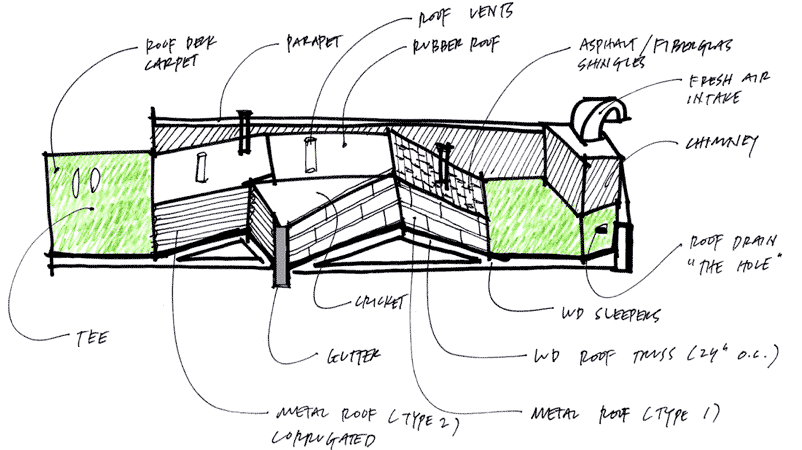 ROOF VENTS
ROOF DECK
CARPET
PARAPET
RUBBER ROOF
ASPHALT/FIBERGLAS
SHINGLES
FRESH AIR
INTAKE
CHIMNEY
ROOF DRAIN
"THE HOLE"
CRICKET
WD SLEEPERS
TEE
GUTTER
WD ROOF TRUSS (24" O.C.)
METAL ROOF (TYPE 2)
CORRUGATED
METAL ROOF (TYPE 1)